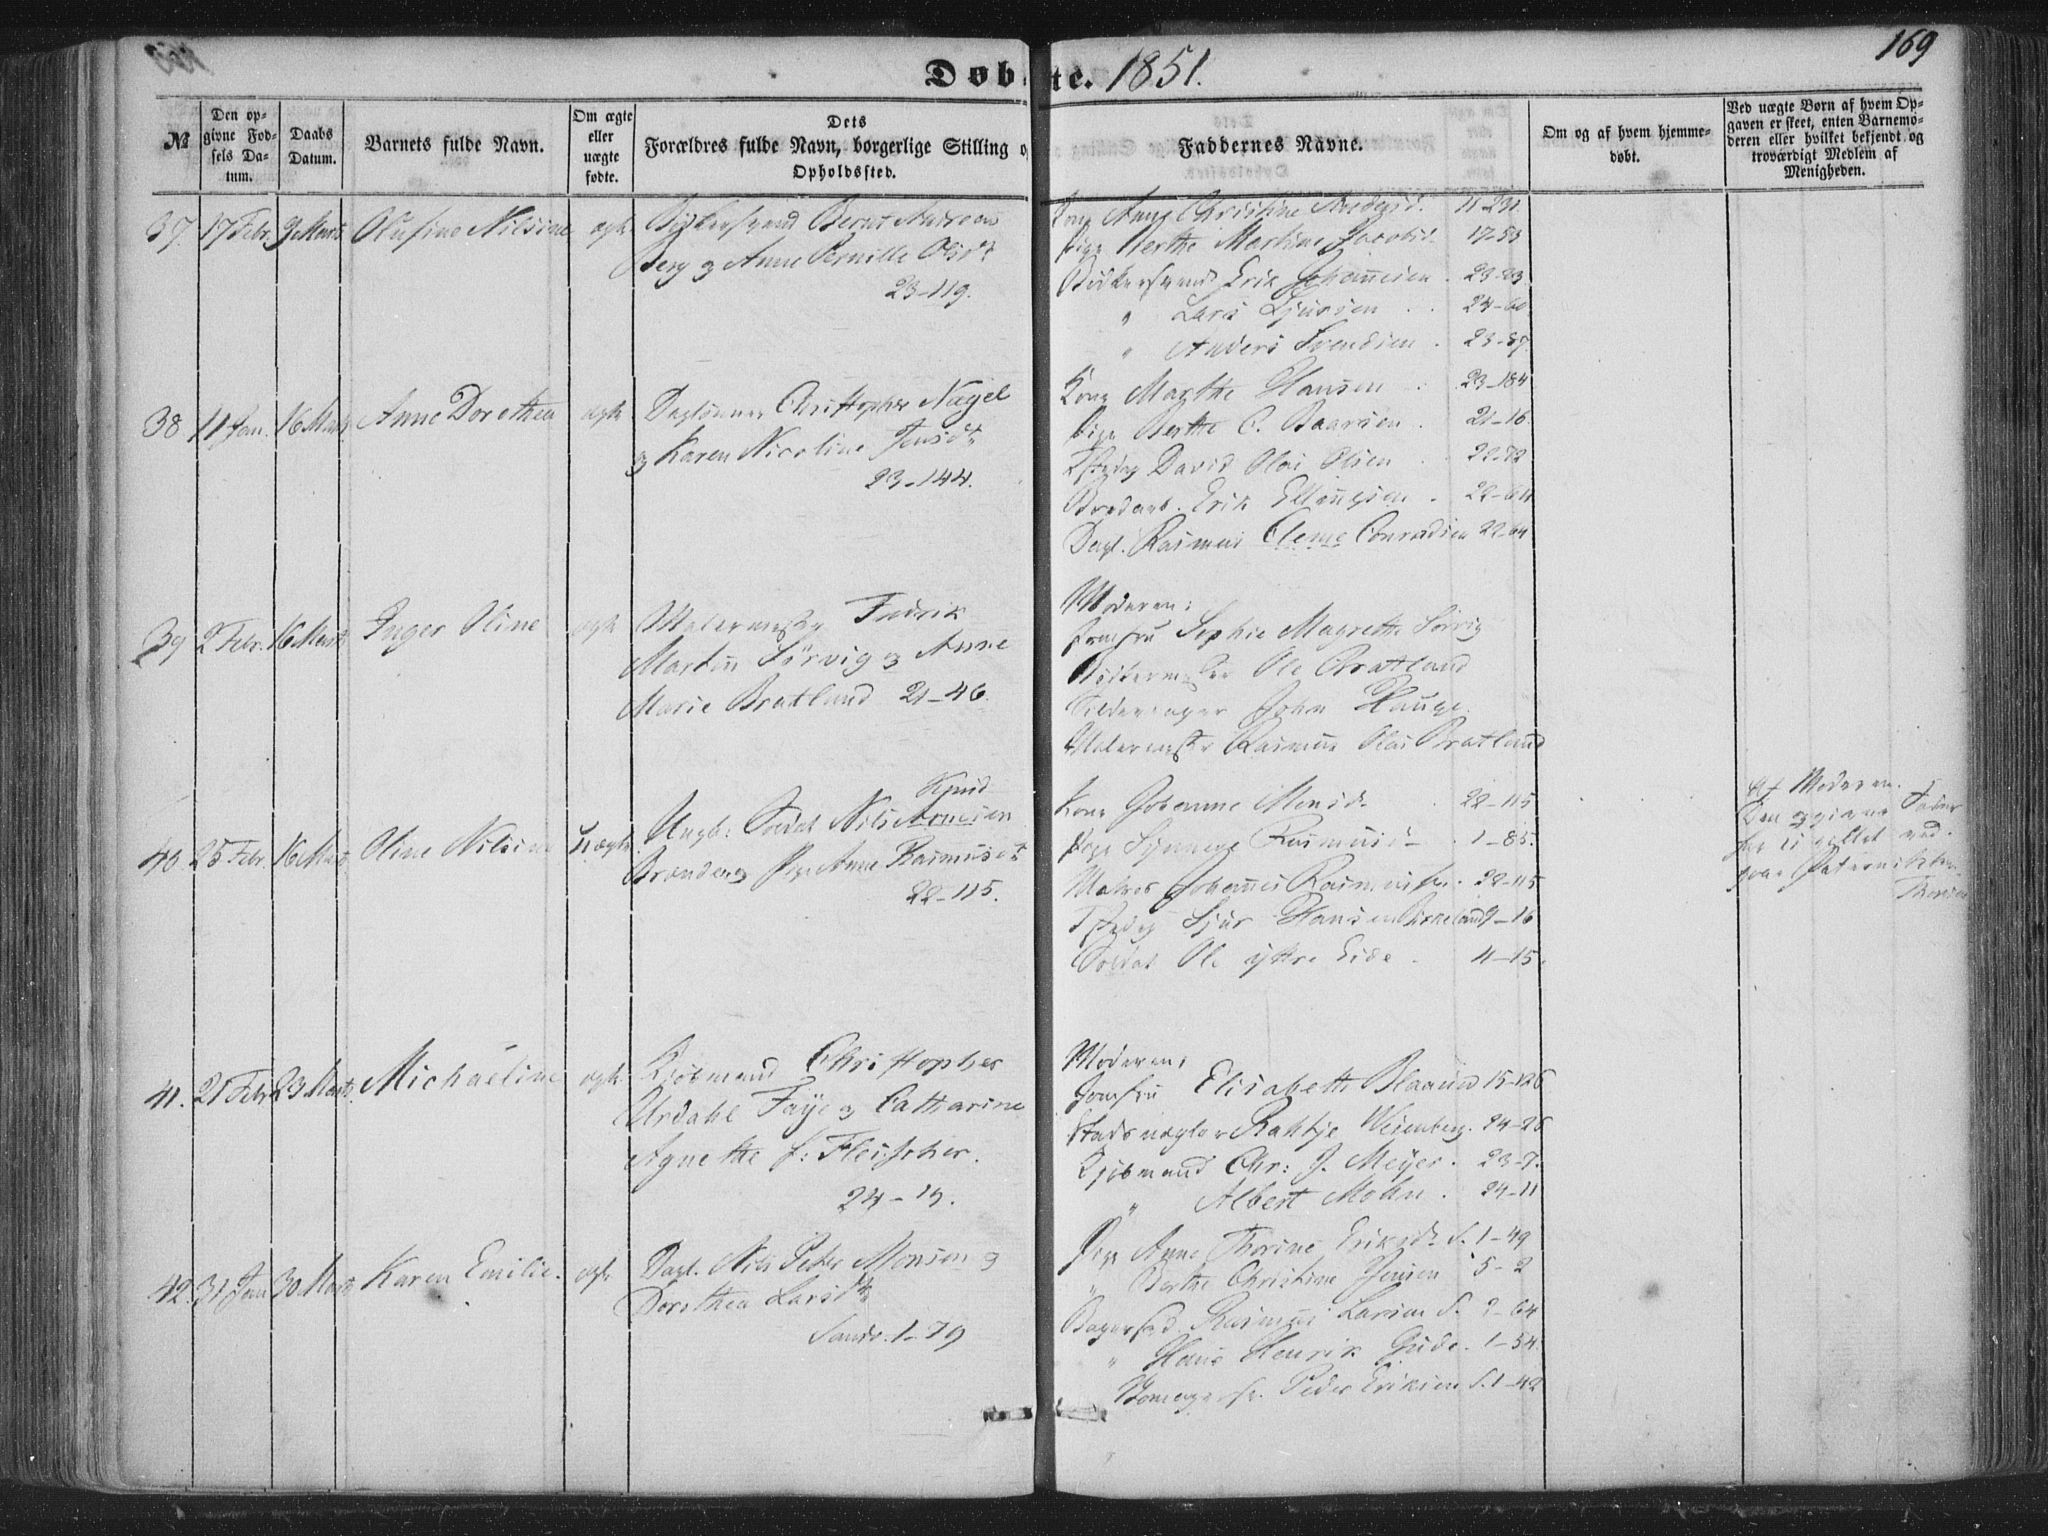 169
Døbte. 1851.
№
Den opgivne Fødsels Datum.
Daabs Datum.
Barnets fulde Navn.
Om ægte eller uægte fødte.
Dets Forældres fulde Navn, borgerlige Stilling o
Opholdssted.
Faddernes Navne.
Om og af hvem hjemmedøbt.
Ved uægte Børn af hvem Opgaven er skeet, enten Barnemoderen eller hvilket bekjendt og troværdigt Medlem af Menigheden.
37. 17 Febr. 9 Marts Olufine Nilsine ægte
Bødkersvend Bernt Andreas
Berg & Anne Pernille Olsdr
23-119.
Kone Anne Christine Andersd. 11-231.
Pige Berthe Martine Jacobsd. 17-53
Bødkersvend Erik Johannesen. 23-23
" Lars Sjursen 24-60
" Anders Svendsen. 23-37
38 11 Jan. 16 Marts Anne Dorothea ægte
Daglønner Christopher Nagel
& Karen Nicoline Jensdr
23-144.
Kone Marthe Hansen 23-184
Pige Berthe C. Baarsen. 21-16.
David Olai Olsen 22-72
Erik Ellingsen. 22-64
Dagl. Rasmus Cleme Conradsen 22-64
39 2 Febr. 16 Marts Inger Oline ægte
Malermester Fredrik
Martin Sørvig & Anne
Marie Bratland 21-46.
Moderen;
Jomfru Sophie Magrethe Sørvig
Bødkermester Ole Bratland
Sildevrager John Hauge.
Malermester Rasmus Olai Bratland
40. 25 Febr. 16 Marts Oline Nilsine Uægte
Knud
Ungk: Soldat Nils Arnesen
Brænden & Pige Anne Rasmusdr
22-115.
Kone Johanne Monsdr 22-115
Pige Rasmusd. 1-85.
Matros Johannes Rasmussen. 22-115
Sjur Hansen Birkeland 9-16
Soldat Ole ytre Eide. 11-15.
Af Moderen.
Den opgivne Fader
har
41. 21 Febr 23 Marts Michaeline ægte
Kjøbmand Christopher
Urdahl Faye & Catharine
Agnethe f: Fleischer.
24-19.
Moderen;
Jomfru Elisabeth Blaauw 15-126
Stadsmægler Rahtje Wesenberg. 24-26
Kjøbmand Chr: J. Meyer. 23-7.
" Albert Mohn. 24-11
42. 31 Jan 30 Marts Karen Emilie. ægte
Dagl. Nils Peter Monsen &
Dorothea Larsdr
Sandv. 1-79
Pige Anne Thorine Eriksdr S. 1-49
" Berthe Christine Jensen 5-2
Bagersvd. Rasmus Larsen S. 2-64
" Hans Henrik Gude. 1-54.
Peder Eriksen S. 1-42